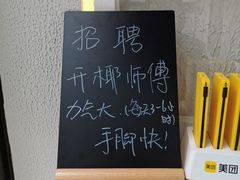 招聘
开椰师傅
力气大.(每天3-6小时)
手脚快!
美团